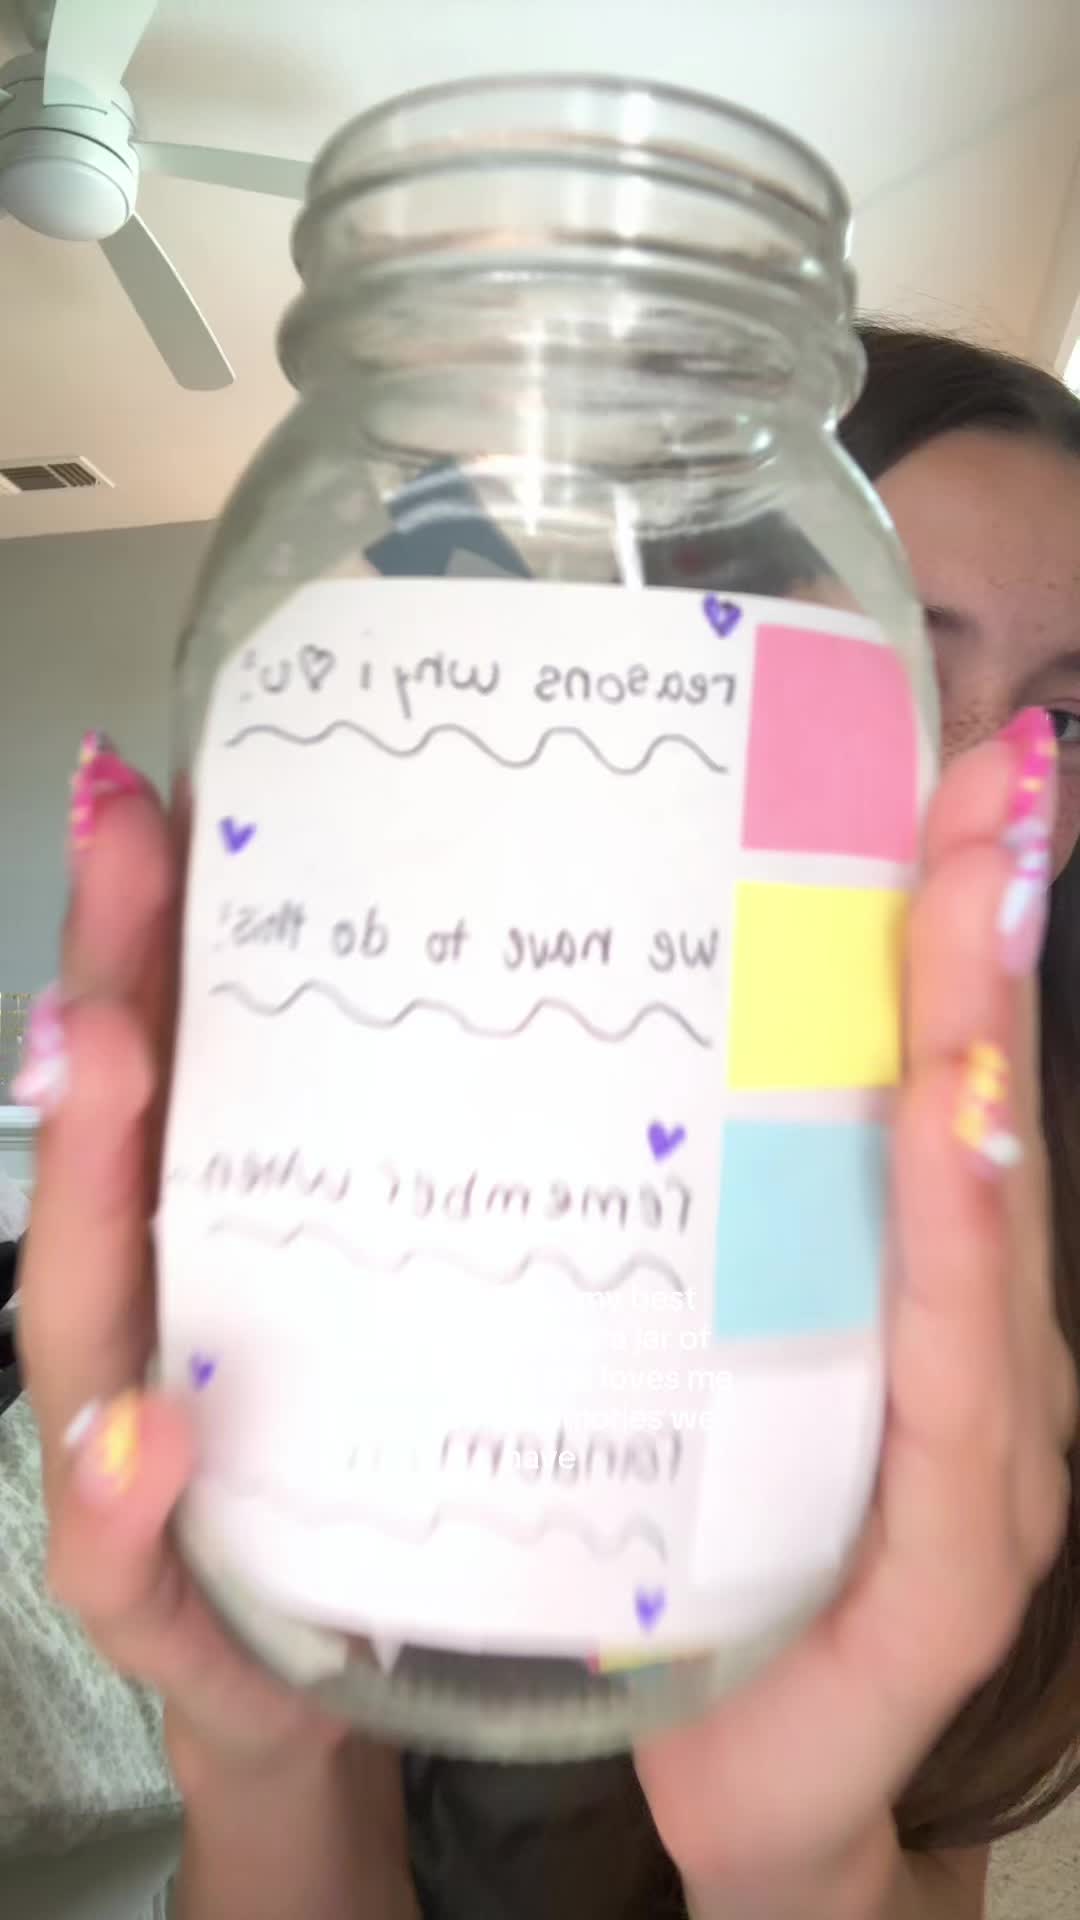 reasons why i ♡ u:
we have to do this!
remember when...
my best
jar of
loves me
memories we
have
random